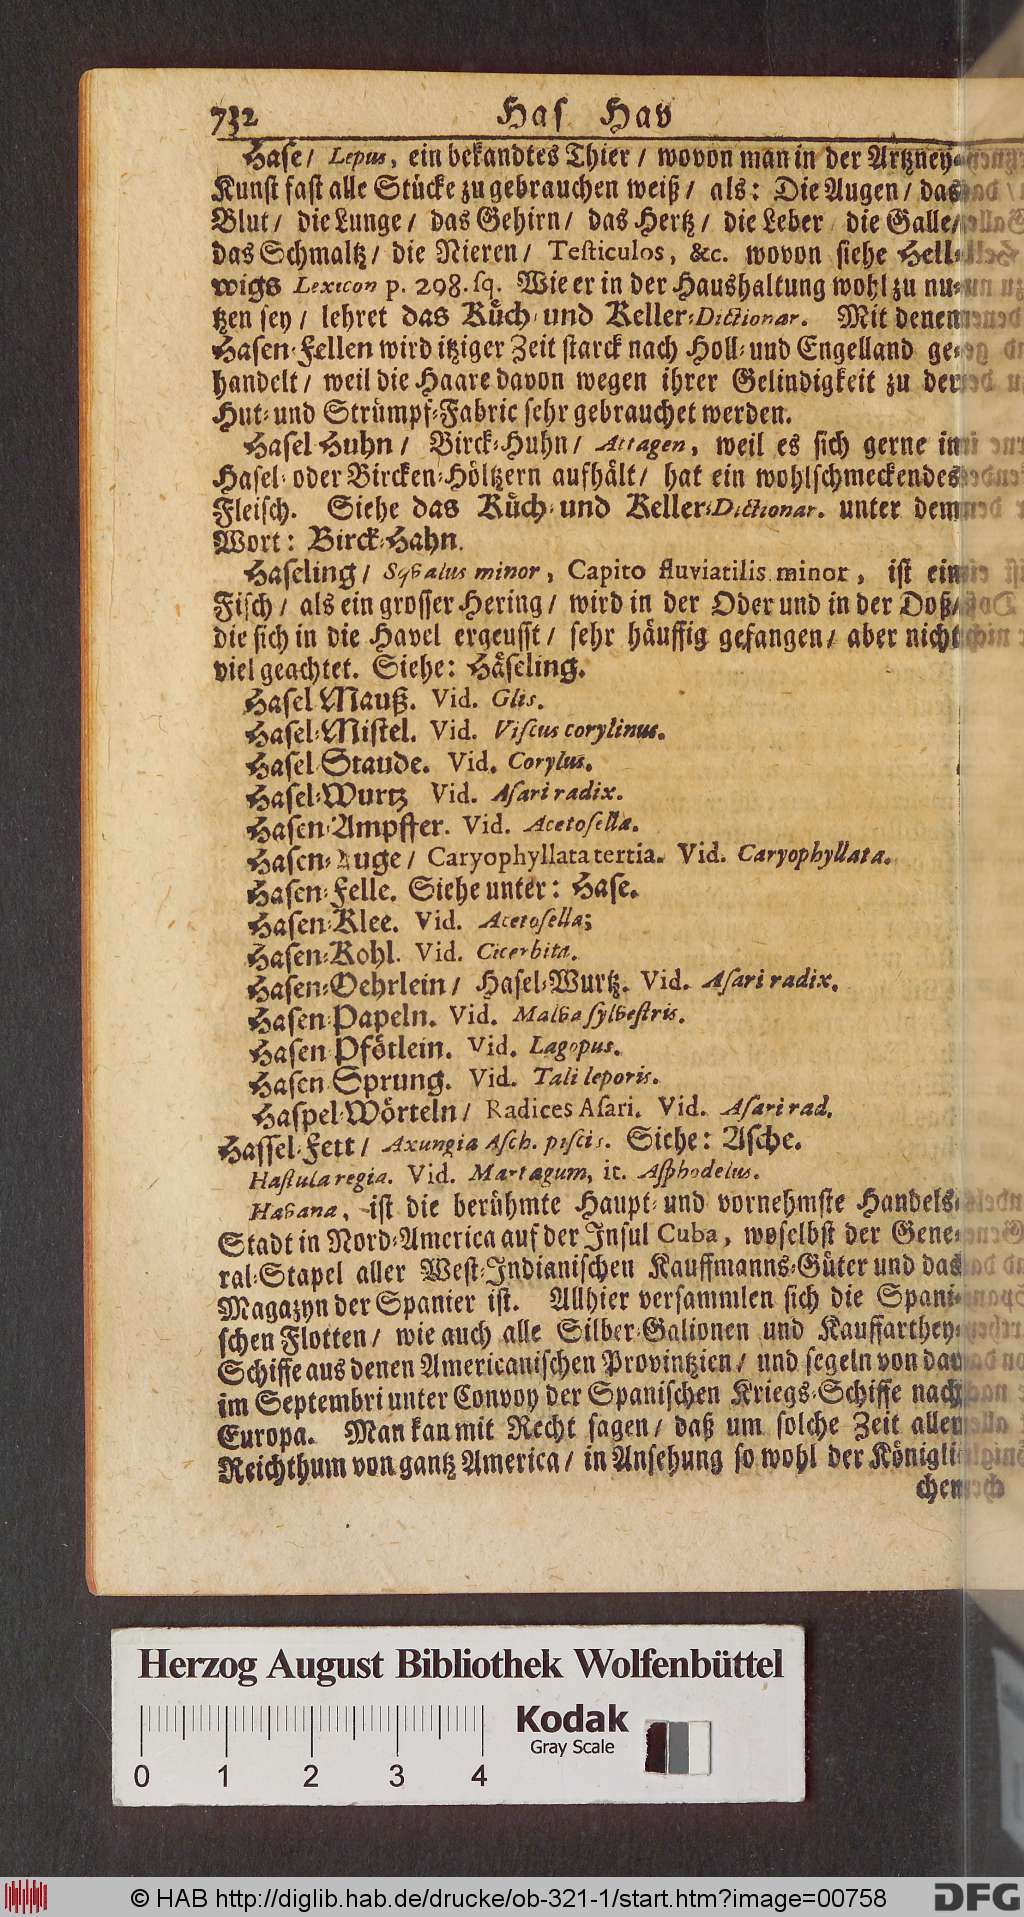 732 Has Hav
Hase/ Lepus, ein bekandtes Thier/ wovon man in der Artzney-
Kunst fast alle Stücke zu gebrauchen weiß/ als: Die Augen/ das
Blut/ die Lunge/ das Gehirn/ das Hertz/ die Leber/ die Galle/
das Schmaltz/ die Nieren/ Testiculos, &c. wovon siehe Hell-
wigs Lexicon p. 298. sq. Wie er in der Haushaltung wohl zu nu-
tzen sey/ lehret das Küch- und Keller-Dictionar. Mit denen
Hasen-Fellen wird itziger Zeit starck nach Holl- und Engelland ge-
handelt/ weil die Haare davon wegen ihrer Gelindigkeit zu der
Hut- und Strümpf-Fabric sehr gebrauchet werden.
Hasel-Huhn/ Birck-Huhn/ Attagen, weil es sich gerne in
Hasel- oder Bircken-Höltzern aufhält/ hat ein wohlschmeckendes
Fleisch. Siehe das Küch- und Keller-Dictionar. unter dem
Wort: Birck-Hahn.
Haseling/ Sqvalus minor, Capito fluviatilis minor, ist ein
Fisch/ als ein grosser Hering/ wird in der Oder und in der Doß/
die sich in die Havel ergeusst/ sehr häuffig gefangen/ aber nicht
viel geachtet. Siehe: Häseling.
Hasel-Mauß. Vid. Glis.
Hasel-Mistel. Vid. Viscus corylinus.
Hasel-Staude. Vid. Corylus.
Hasel-Wurtz Vid. Asari radix.
Hasen-Ampffer. Vid. Acetosella.
Hasen-Auge/ Caryophyllata tertia. Vid. Caryophyllata.
Hasen-Felle. Siehe unter: Hase.
Hasen-Klee. Vid. Acetosella;
Hasen-Kohl. Vid. Cicerbita.
Hasen-Oehrlein/ Hasel-Wurtz. Vid. Asari radix.
Hasen-Papeln. Vid. Malva sylvestris.
Hasen-Pfötlein. Vid. Lagopus.
Hasen-Sprung. Vid. Tali leporis.
Haspel-Wörteln/ Radices Asari. Vid. Asari rad.
Hassel-Fett/ Axungia Asch. piscis. Siehe: Asche.
Hastula regia. Vid. Martagum, it. Asphodelus.
Havana, ist die berühmte Haupt- und vornehmste Handels-
Stadt in Nord-America auf der Insul Cuba, woselbst der Gene-
ral-Stapel aller West-Indianischen Kauffmanns-Güter und das
Magazyn der Spanier ist. Allhier versammlen sich die Spani-
schen Flotten/ wie auch alle Silber-Galionen und Kauffarthey-
Schiffe aus denen Americanischen Provintzien/ und segeln von dar
im Septembri unter Convoy der Spanischen Kriegs-Schiffe nach
Europa. Man kan mit Recht sagen/ daß um solche Zeit aller
Reichthum von gantz America/ in Ansehung so wohl der Königli-
chen
Herzog August Bibliothek Wolfenbüttel
Kodak
Gray Scale
0 1 2 3 4
© HAB http://diglib.hab.de/drucke/ob-321-1/start.htm?image=00758
DFG